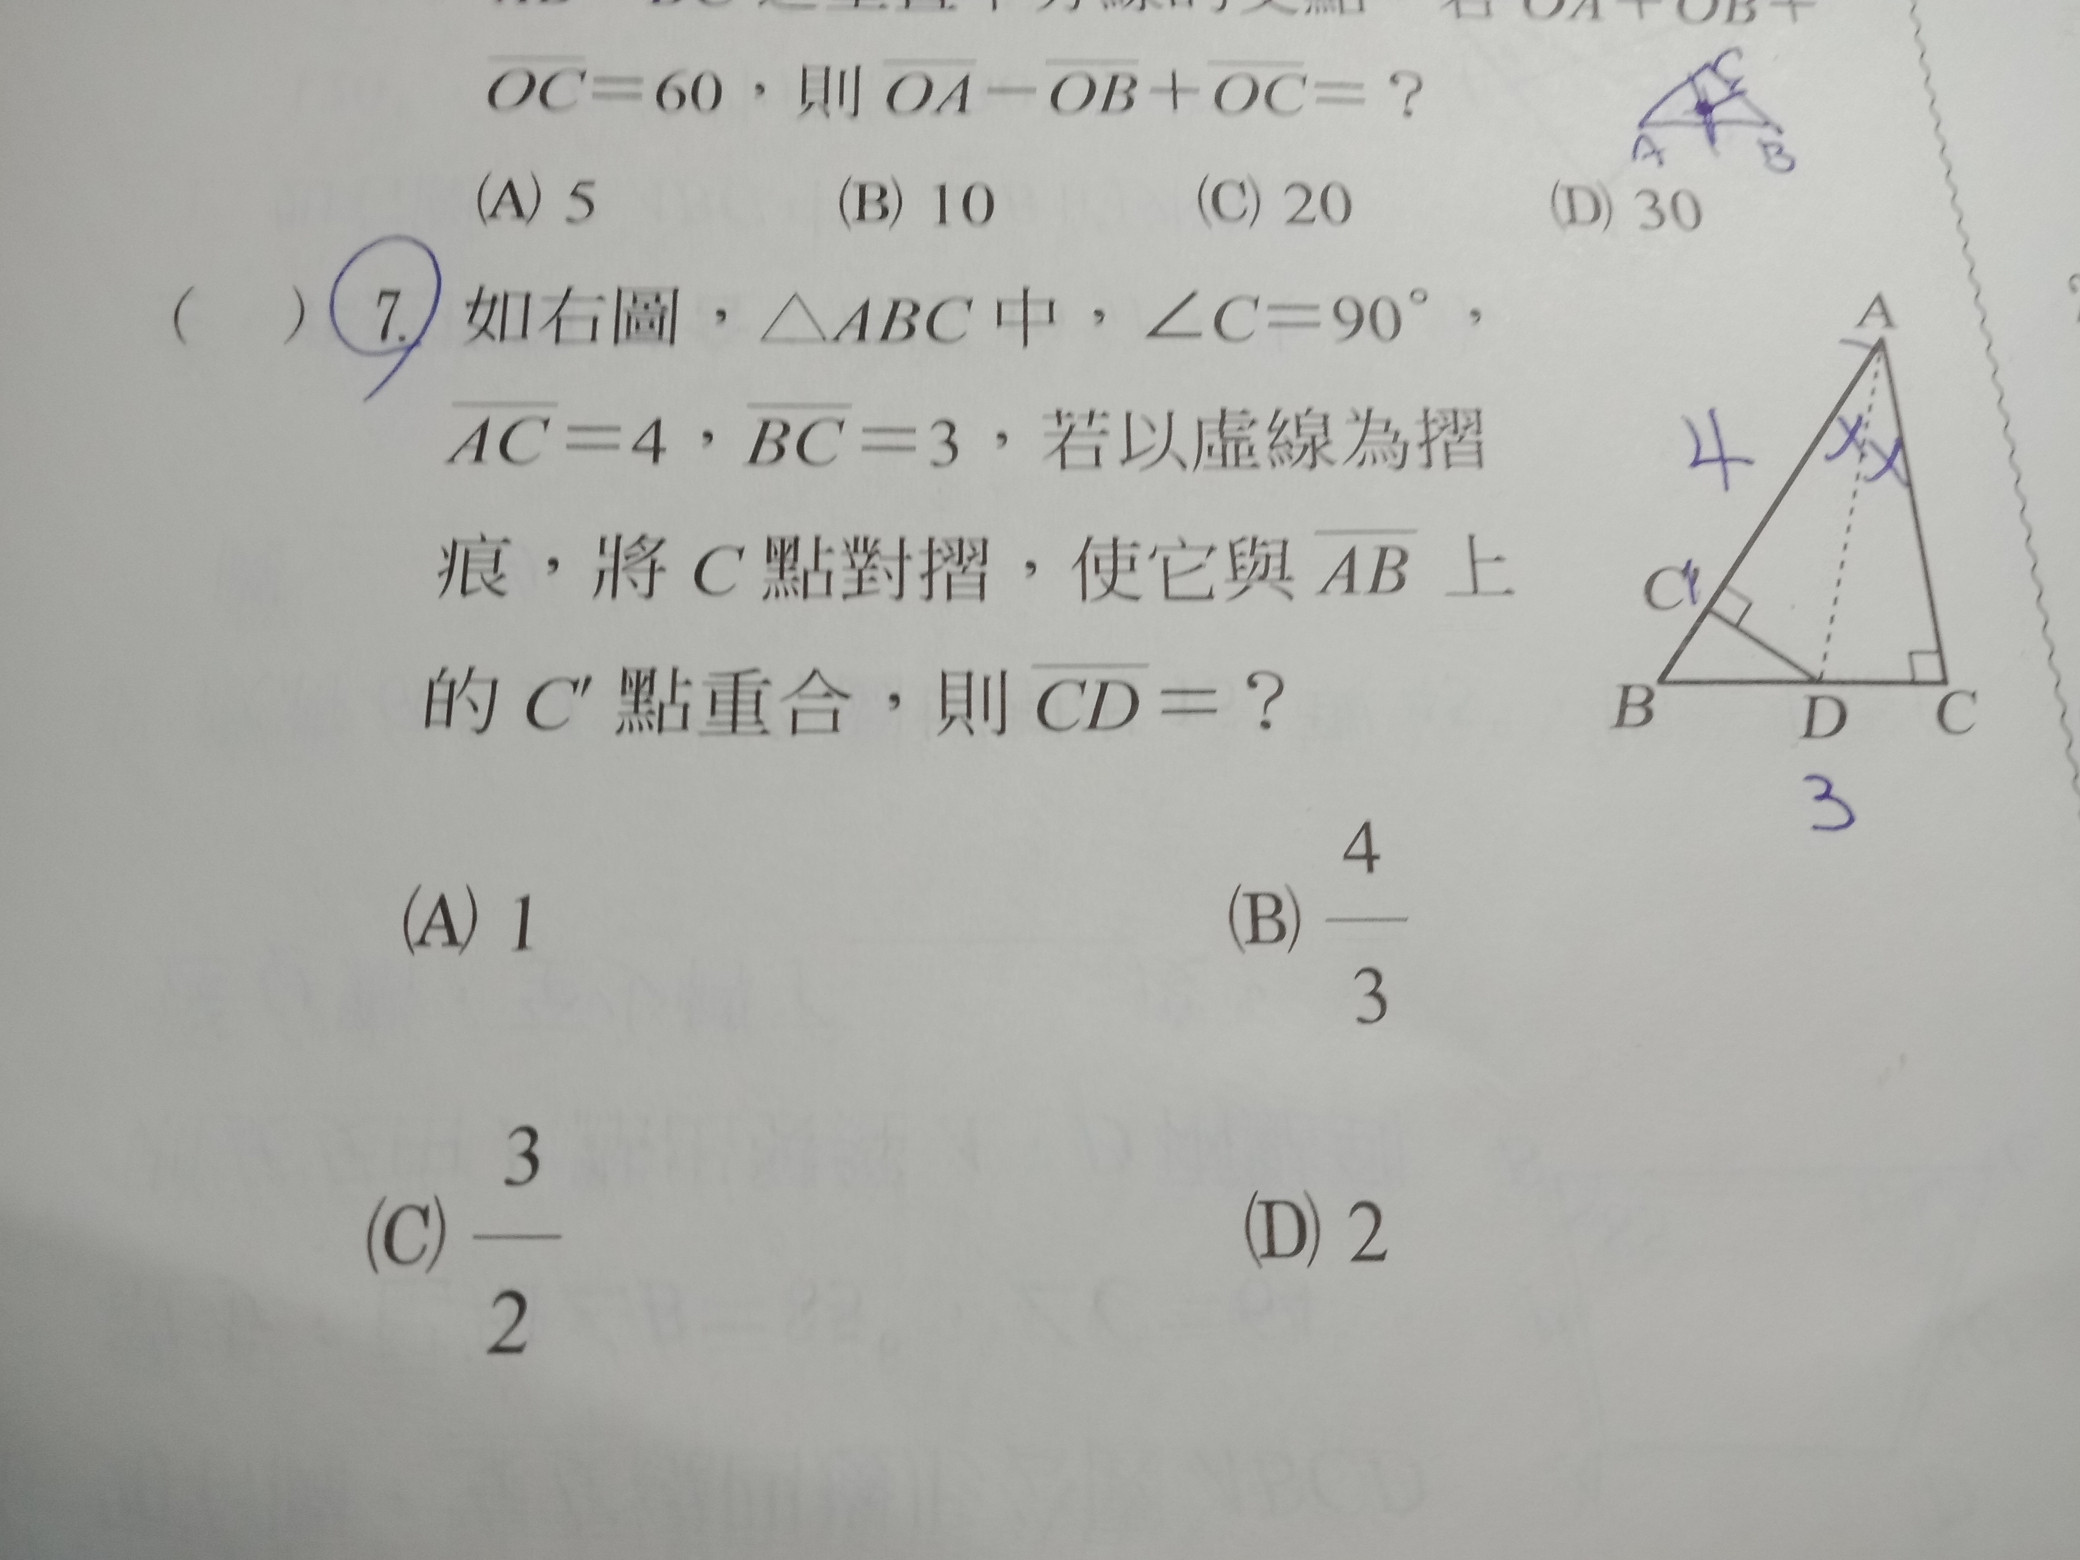 OC=60，則 OA－OB＋OC=？
(A) 5 (B) 10 (C) 20 (D) 30
C
A B
( ) 7. 如右圖，△ABC 中，∠C=90°，
AC=4，BC=3，若以虛線為摺
痕，將 C 點對摺，使它與 AB 上
的 C′ 點重合，則 CD=？
A
4 x x
C′
B D C
3
(A) 1 (B) 4/3
(C) 3/2 (D) 2